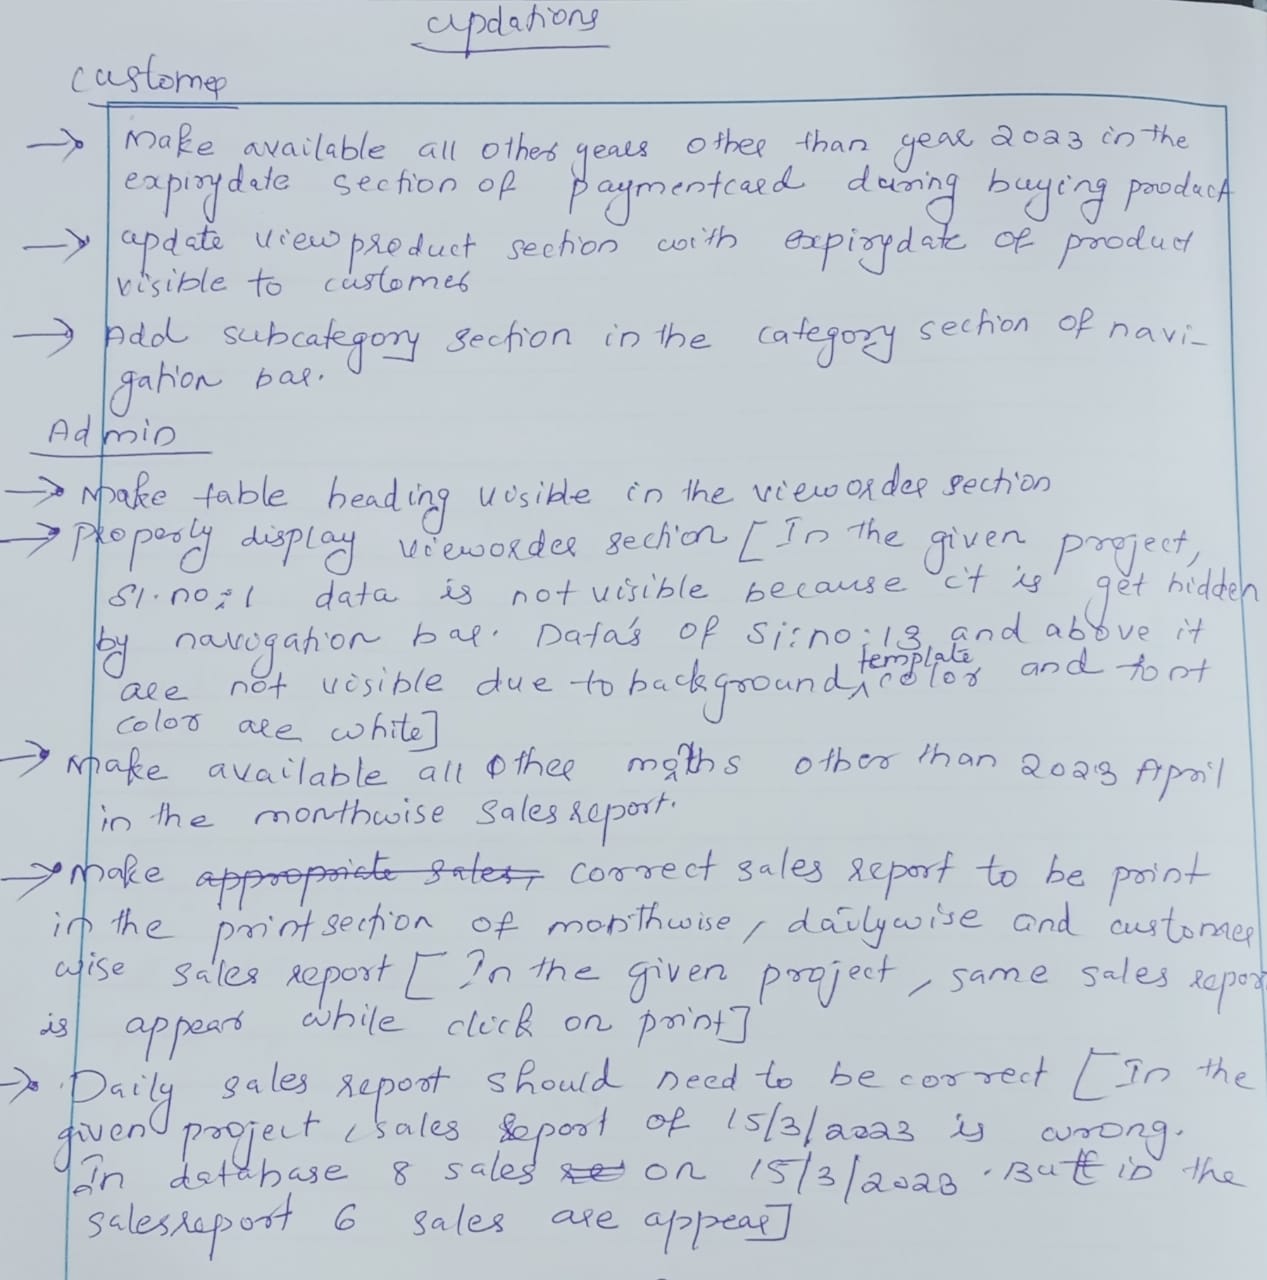 updations
customer
→ Make available all other years other than year 2023 in the
expirydate section of paymentcard during buying product
→ update view product section with expirydate of product
visible to customer
→ Add subcategory section in the category section of navi-
gation bar.
Admin
→ Make table heading visible in the vieworder section
→ Properly display vieworder section [In the given project,
Sl.no:1 data is not visible because it is get hidden
by navigation bar. Data's of Sl:no:13 and above it
are not visible due to background, template color and font
color are white]
→ Make available all other months other than 2023 April
in the monthwise salesreport.
→ Make appropriate sales, correct sales report to be print
in the print section of monthwise, dailywise and customer
wise sales report [In the given project, same sales repor
is appear while click on print]
→ Daily sales report should need to be correct [In the
given project, sales report of 15/3/2023 is wrong.
In database 8 sales on 15/3/2023. But in the
salesreport 6 sales are appear]